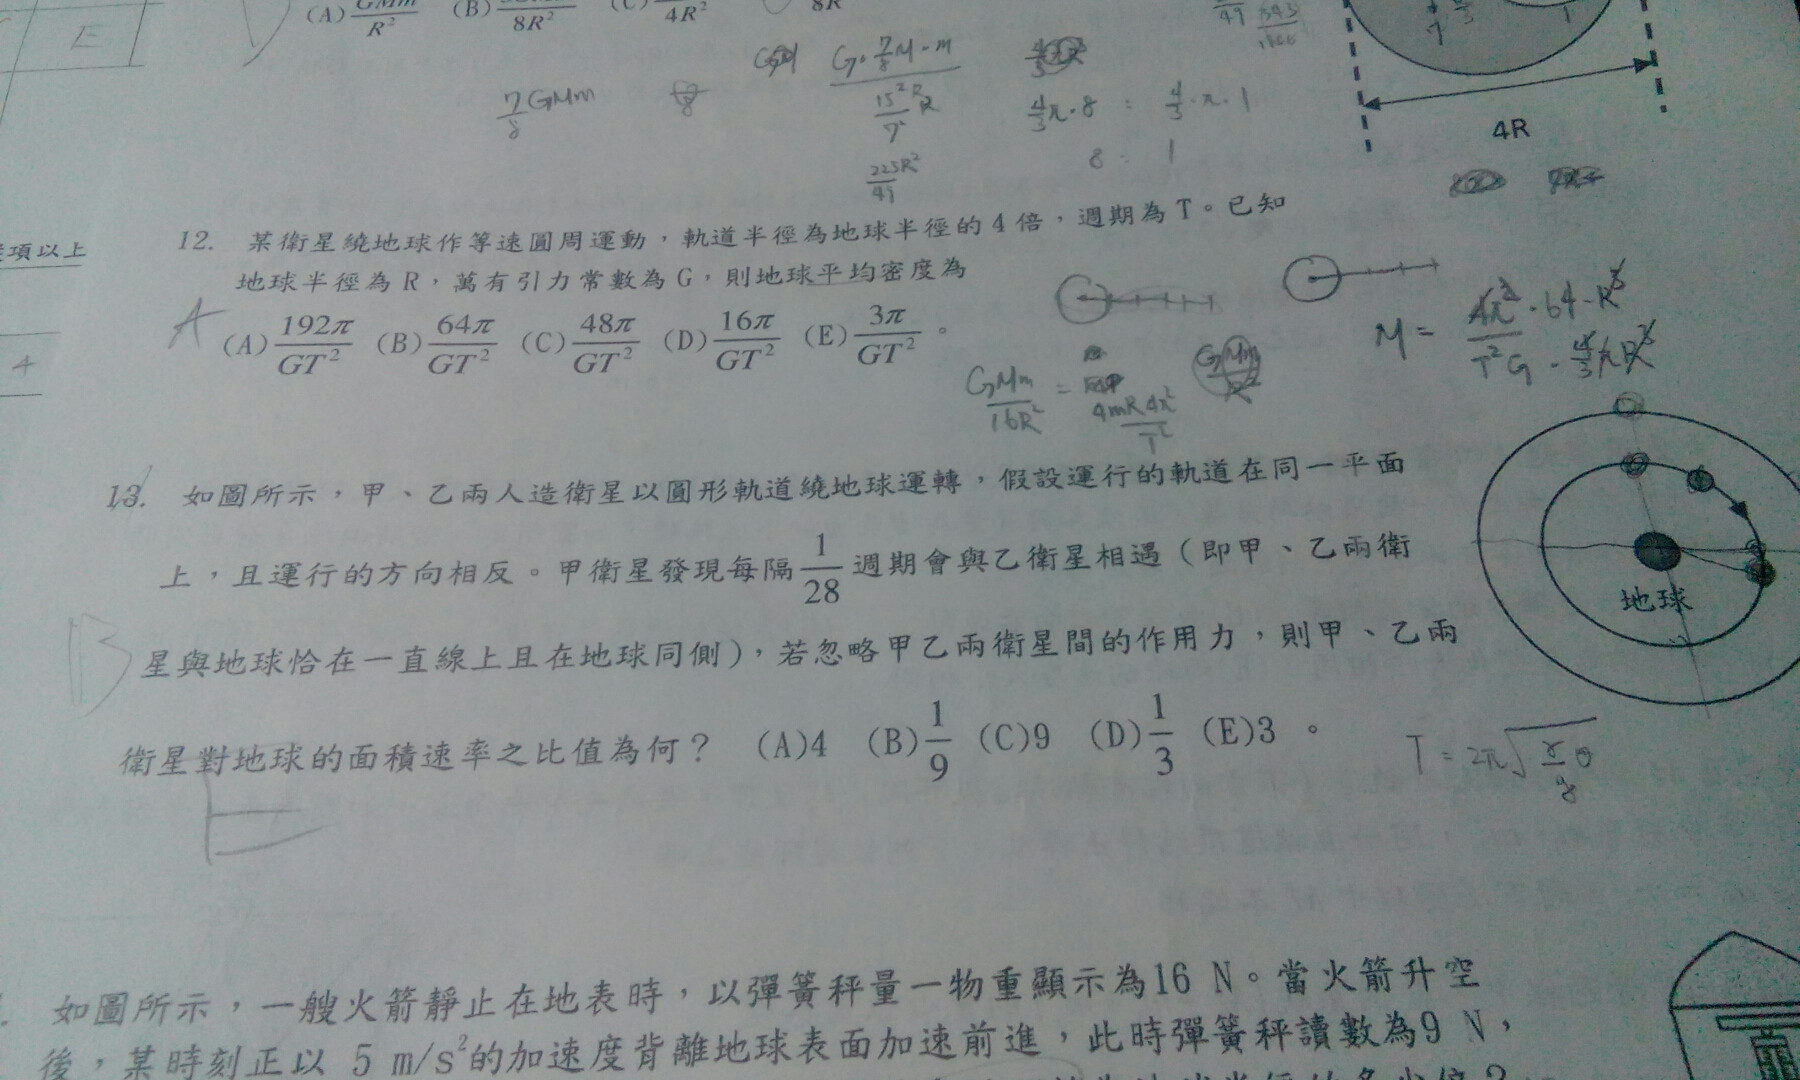 (A) GMm/R² (B) 8R² (C) 4R² 8R
E
7/8 GMm
G·7/8M·m
15²/7² R
225R²/49
4/3π·8 : 4/3·π·1
8 : 1
4R
項以上
4
12. 某衛星繞地球作等速圓周運動，軌道半徑為地球半徑的 4 倍，週期為 T。已知
地球半徑為 R，萬有引力常數為 G，則地球平均密度為
A
(A) 192π/GT² (B) 64π/GT² (C) 48π/GT² (D) 16π/GT² (E) 3π/GT² 。
GMm/16R² = 4mR4π²/T²
M = 4π²·64·R³/T²G·4/3πR³
13. 如圖所示，甲、乙兩人造衛星以圓形軌道繞地球運轉，假設運行的軌道在同一平面
上，且運行的方向相反。甲衛星發現每隔 1/28 週期會與乙衛星相遇（即甲、乙兩衛
星與地球恰在一直線上且在地球同側），若忽略甲乙兩衛星間的作用力，則甲、乙兩
衛星對地球的面積速率之比值為何？ (A)4 (B)1/9 (C)9 (D)1/3 (E)3 。
B
地球
如圖所示，一艘火箭靜止在地表時，以彈簧秤量一物重顯示為16 N。當火箭升空
後，某時刻正以 5 m/s²的加速度背離地球表面加速前進，此時彈簧秤讀數為9 N，